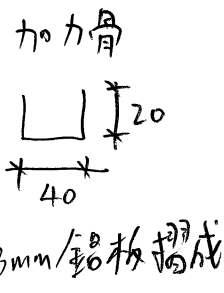 加力骨
20
40
3mm鋁板摺成